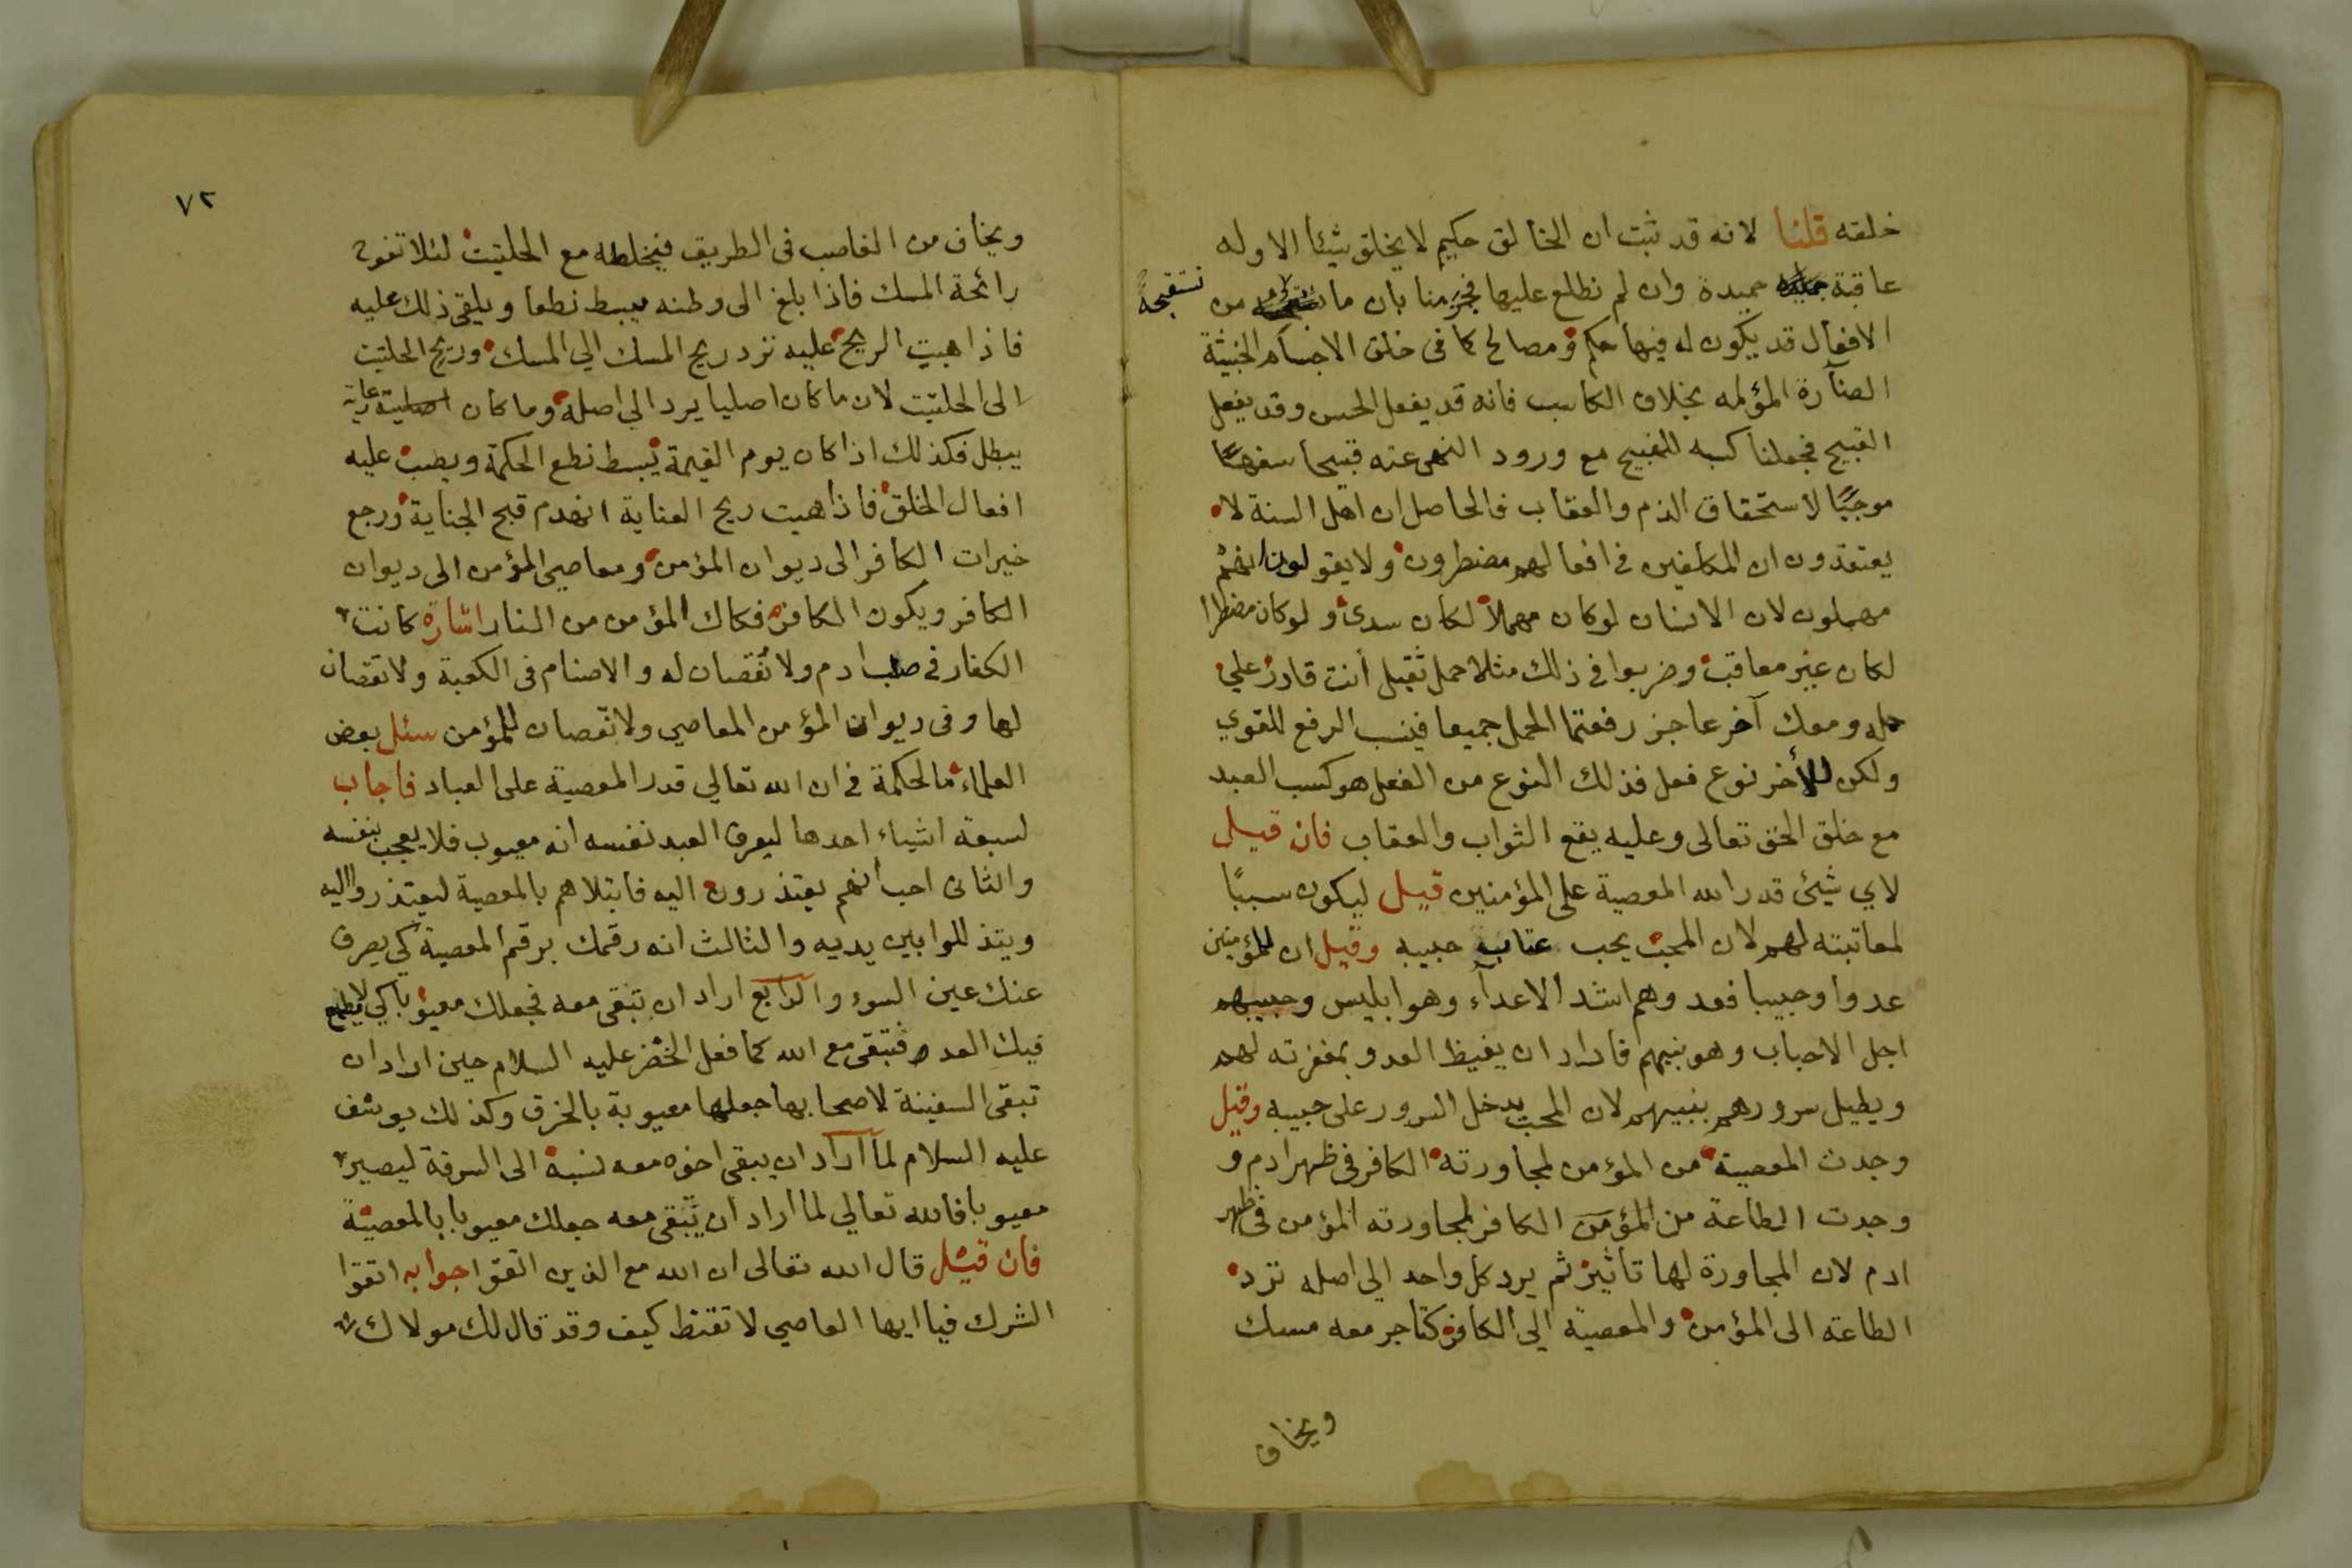 خلقه قلنا لانه قد ثبت ان الخالق حكيم لا يخلق شيئا الا وله
عاقبة حميدة وان لم نطلع عليها فجزمنا بان ما نستقبحه من
الافعال قد يكون له فيها حكم ومصالح كما في خلق الاجسام الخبيثة
الضآرة المؤلمه بخلاف الكاسب فانه قد يفعل الحسن وقد يفعل
القبيح فجعلنا كسبه للقبيح مع ورود النهى عنه قبيحا سفها
موجبًا لاستحقاق الذم والعقاب فالحاصل ان اهل السنة لا
يعتقدون ان المكلفين في افعالهم مضطرون ولا يقولون انهم
مهملون لان الانسان لو كان مهملاً لكان سدى ولو كان مضطرا
لكان غير معاقب وضربوا في ذلك مثلا حمل ثقيل أنت قادر علي
حمله ومعك آخر عاجز رفعتما الحمل جميعا فينسب الرفع للقوي
ولكن للأخر نوع فعل فذلك النوع من الفعل هو كسب العبد
مع خلق الحق تعالى وعليه يقع الثواب والعقاب فان قيل
لاي شيئ قدر الله المعصية على المؤمنين قيل ليكون سببًا
لمعاتبته لهم لان المحب يحب عتاب حبيبه وقيل ان للمؤمنين
عدوا وحبيبا فعدوهم اشد الاعدآء وهو ابليس وحبيبهم
اجل الاحباب وهو نبيهم فاراد ان يغيظ العدو بمغفرته لهم
ويطيل سرورهم بنبيهم لان المحب يدخل السرور على حبيبه وقيل
وجدت المعصية من المؤمن لمجاورته الكافر في ظهر ادم و
وجدت الطاعة من المؤمن الكافر لمجاورته المؤمن في ظهر
ادم لان المجاورة لها تأثير ثم يرد كل واحد الي اصله ترد
الطاعة الى المؤمن والمعصية الي الكافر كتاجر معه مسك
ويخاف
٧٢
ويخاف من الغاصب في الطريق فيخلطه مع الحلتيت لئلا تفوح
رائحة المسك فاذا بلغ الى وطنه يبسط نطعا ويلقى ذلك عليه
فاذا هبت الريح عليه ترد ريح المسك الي المسك وريح الحلتيت
الى الحلتيت لان ما كان اصليا يرد الي اصله وما كان عارية
يبطل فكذلك اذا كان يوم القيمة يبسط نطع الحكمة ويصب عليه
افعال الخلق فاذا هبت ريح العناية انهدم قبح الجناية ورجع
خيرات الكافر الى ديوان المؤمن ومعاصي المؤمن الى ديوان
الكافر ويكون الكافر فكاك المؤمن من النار اشارة كانت
الكفار في صلب ادم ولا نقصان له والاصنام في الكعبة ولا نقصان
لها وفي ديوان المؤمن المعاصي ولا نقصان للمؤمن سئل بعض
العلماء ما الحكمة في ان الله تعالي قدر المعصية على العباد فاجاب
لسبعة اشياء احدها ليعرف العبد نفسه انه معيوب فلا يعجب بنفسه
والثانى احب أنهم يعتذرون اليه فابتلاهم بالمعصية ليعتذروا اليه
ويتذللوا بين يديه والثالث انه رقمك برقم المعصية كي يصرف
عنك عين السوء والرابع اراد ان تبقى معه فجعلك معيوبا كي لا يطمع
فيك العدو فتبقى مع الله كما فعل الخضر عليه السلام حين اراد ان
تبقى السفينة لاصحابها جعلها معيوبة بالخرق وكذلك يوسف
عليه السلام لما أراد ان يبقى اخوه معه نسبه الى السرقة ليصير
معيوبا فالله تعالي لما اراد ان تبقى معه جعلك معيوبا بالمعصية
فان قيل قال الله تعالى ان الله مع الذين اتقوا جوابه اتقوا
الشرك فيا ايها العاصي لا تقنط كيف وقد قال لك مولاك